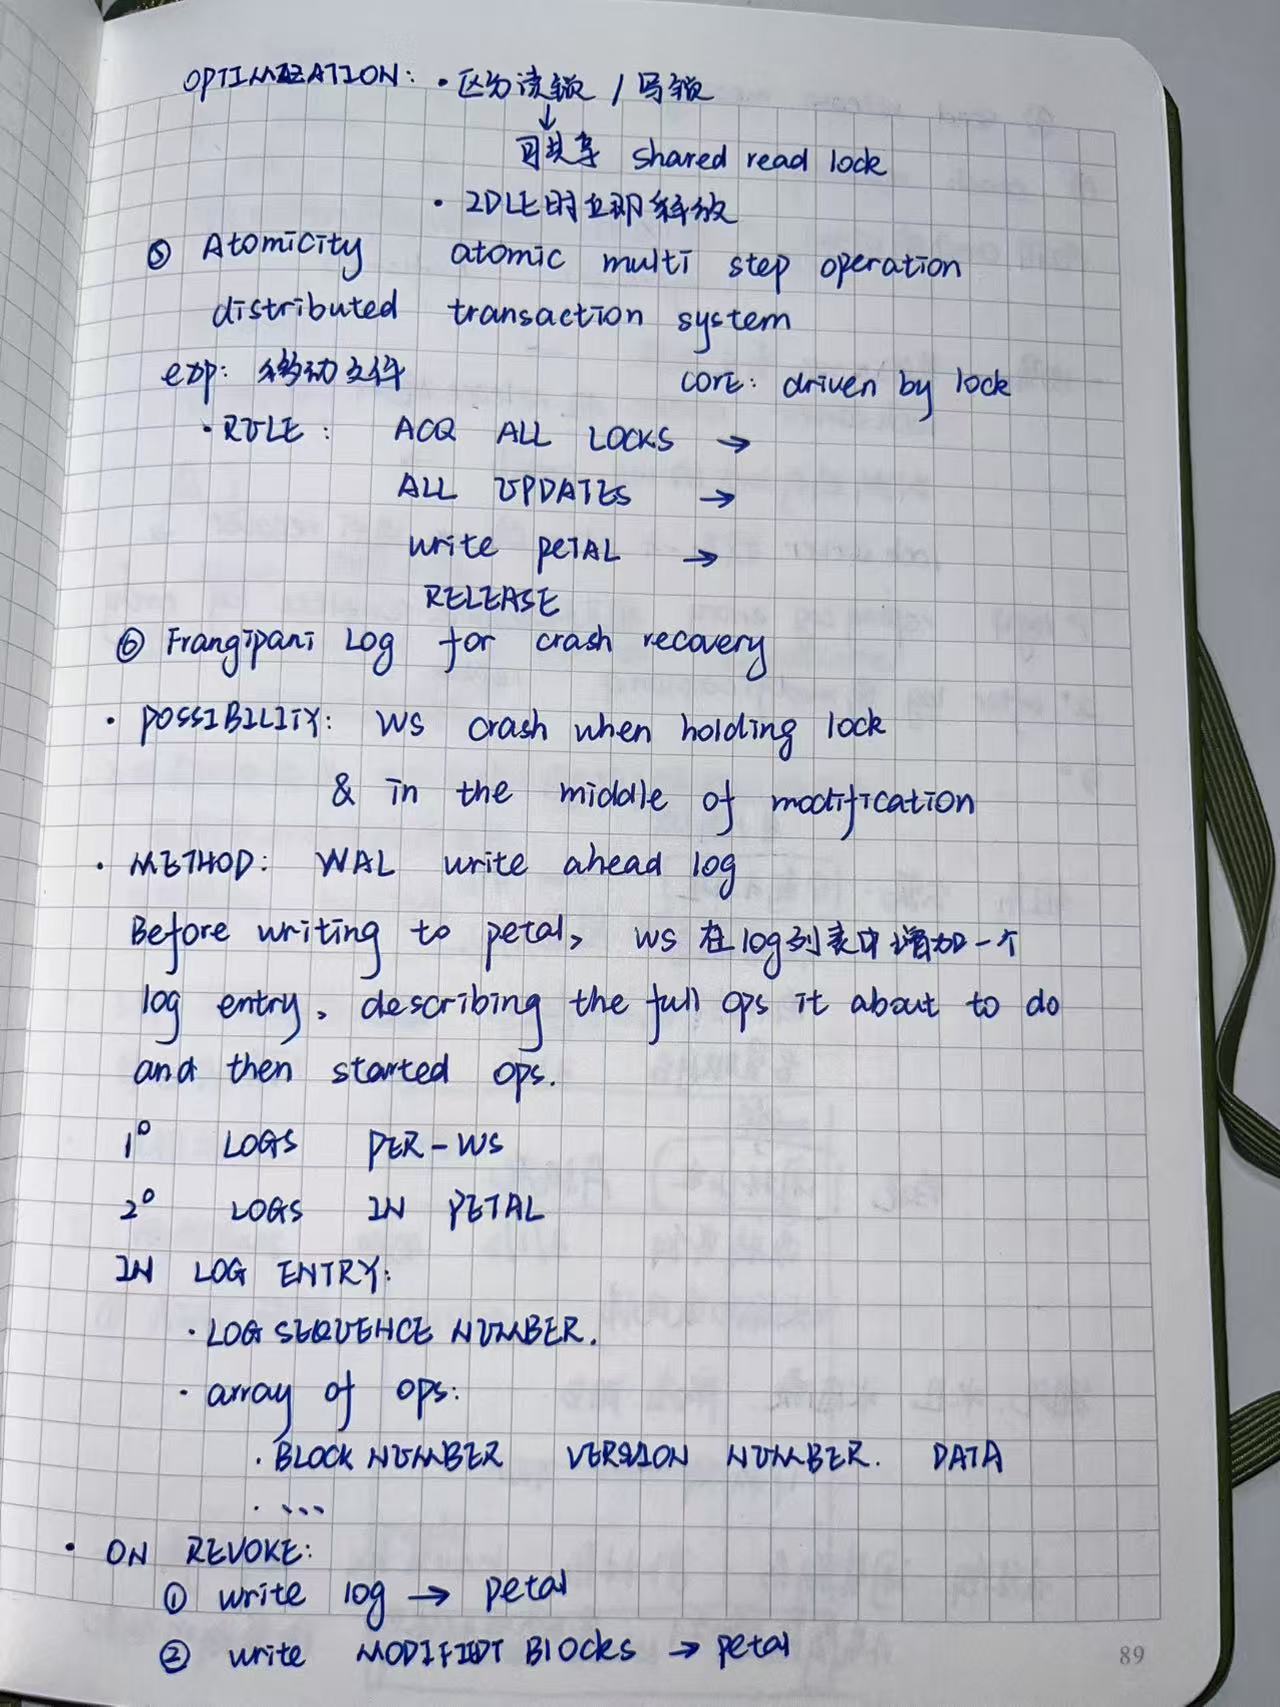 OPTIMIZATION: · 区分读锁 / 写锁
↓
可共享 shared read lock
· IDLE时立即释放
⑤ Atomicity atomic multi step operation
distributed transaction system
exp: 移动文件 core: driven by lock
· RULE: ACQ ALL LOCKS →
ALL UPDATES →
write PETAL →
RELEASE
⑥ Frangipani Log for crash recovery
· POSSIBILITY: WS crash when holding lock
& in the middle of modification
· METHOD: WAL write ahead log
Before writing to petal, WS 在log列表中增加一个
log entry, describing the full ops it about to do
and then started ops.
1° LOGS PER-WS
2° LOGS IN PETAL
IN LOG ENTRY:
· LOG SEQUENCE NUMBER.
· array of ops:
· BLOCK NUMBER VERSION NUMBER. DATA
· ...
· ON REVOKE:
① write log → petal
② write MODIFIDT Blocks → petal
89